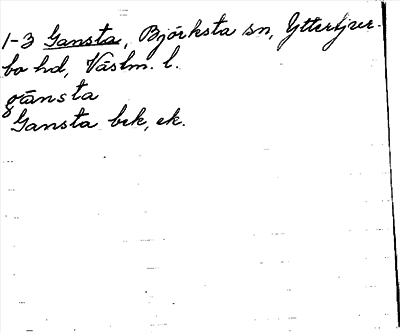 1-3 Gansta, Björksta sn, Yttertjur-
bo hd, Västm. l.
gånsta
Gansta bek, ek.